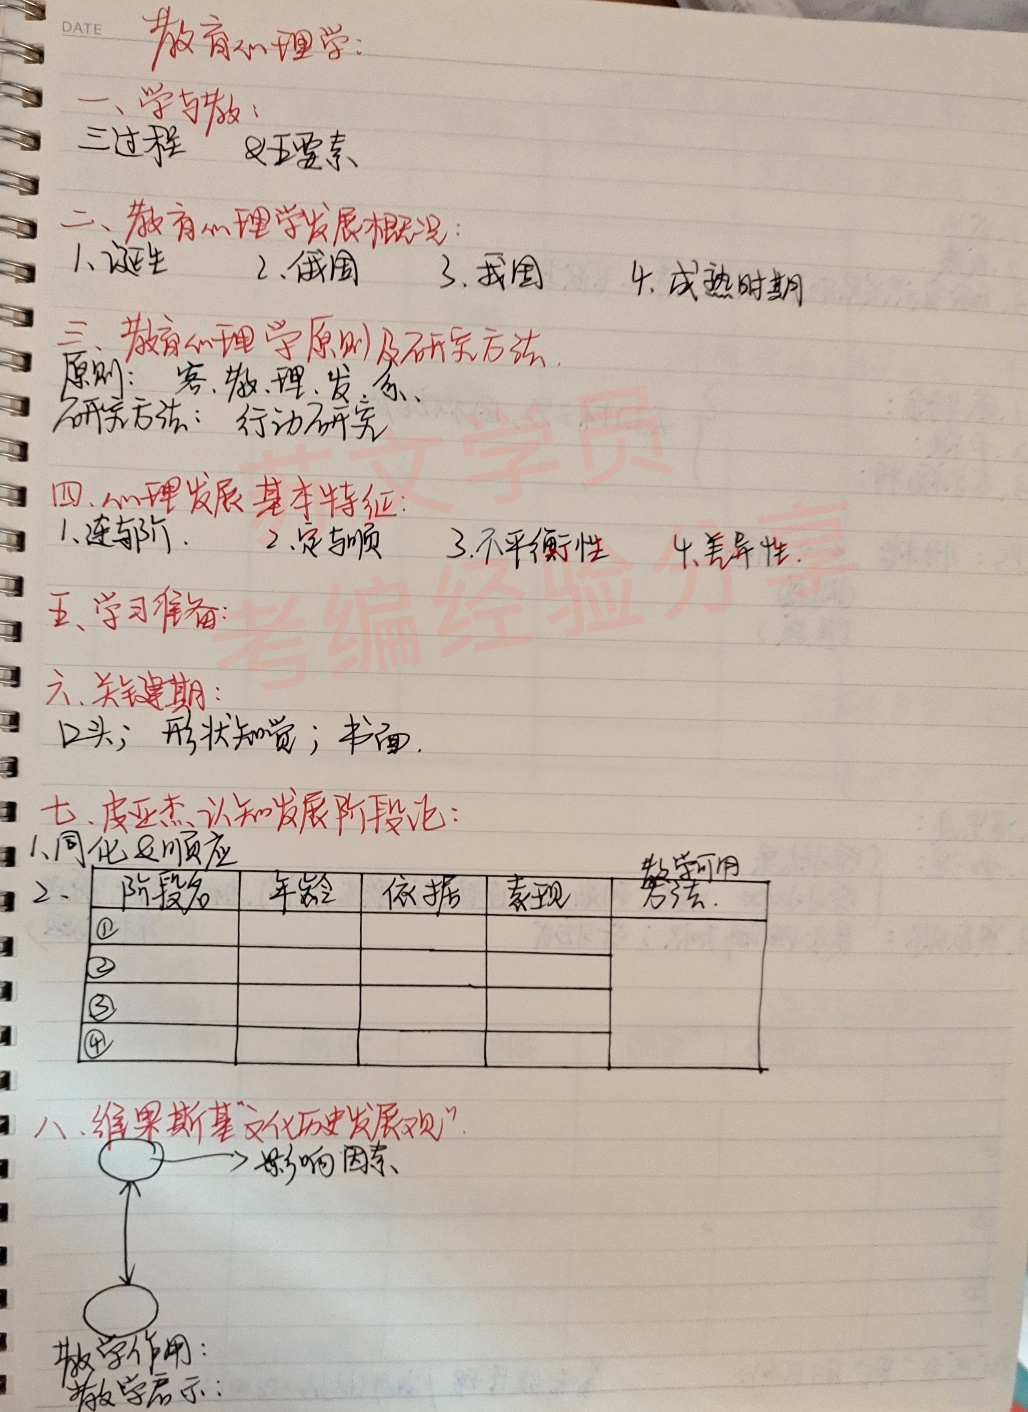 DATE
教育心理学:
一、学与教:
三过程 &五要素、
二、教育心理学发展概况:
1、诞生 2、俄国 3、我国 4、成熟时期
三、教育心理学原则及研究方法.
原则: 客、教、理、发、系、
研究方法: 行动研究
苏文学员
四、心理发展基本特征:
1、连与阶. 2、定与顺 3、不平衡性 4、差异性.
考编经验分享
五、学习准备:
六、关键期:
口头; 形状知觉; 书面.
七、皮亚杰认知发展阶段论:
1、同化&顺应
2、 阶段名 年龄 依据 表现 教学可用
方法.
①
②
③
④
八、维果斯基"文化历史发展观".
影响因素、
教学作用:
教学启示: